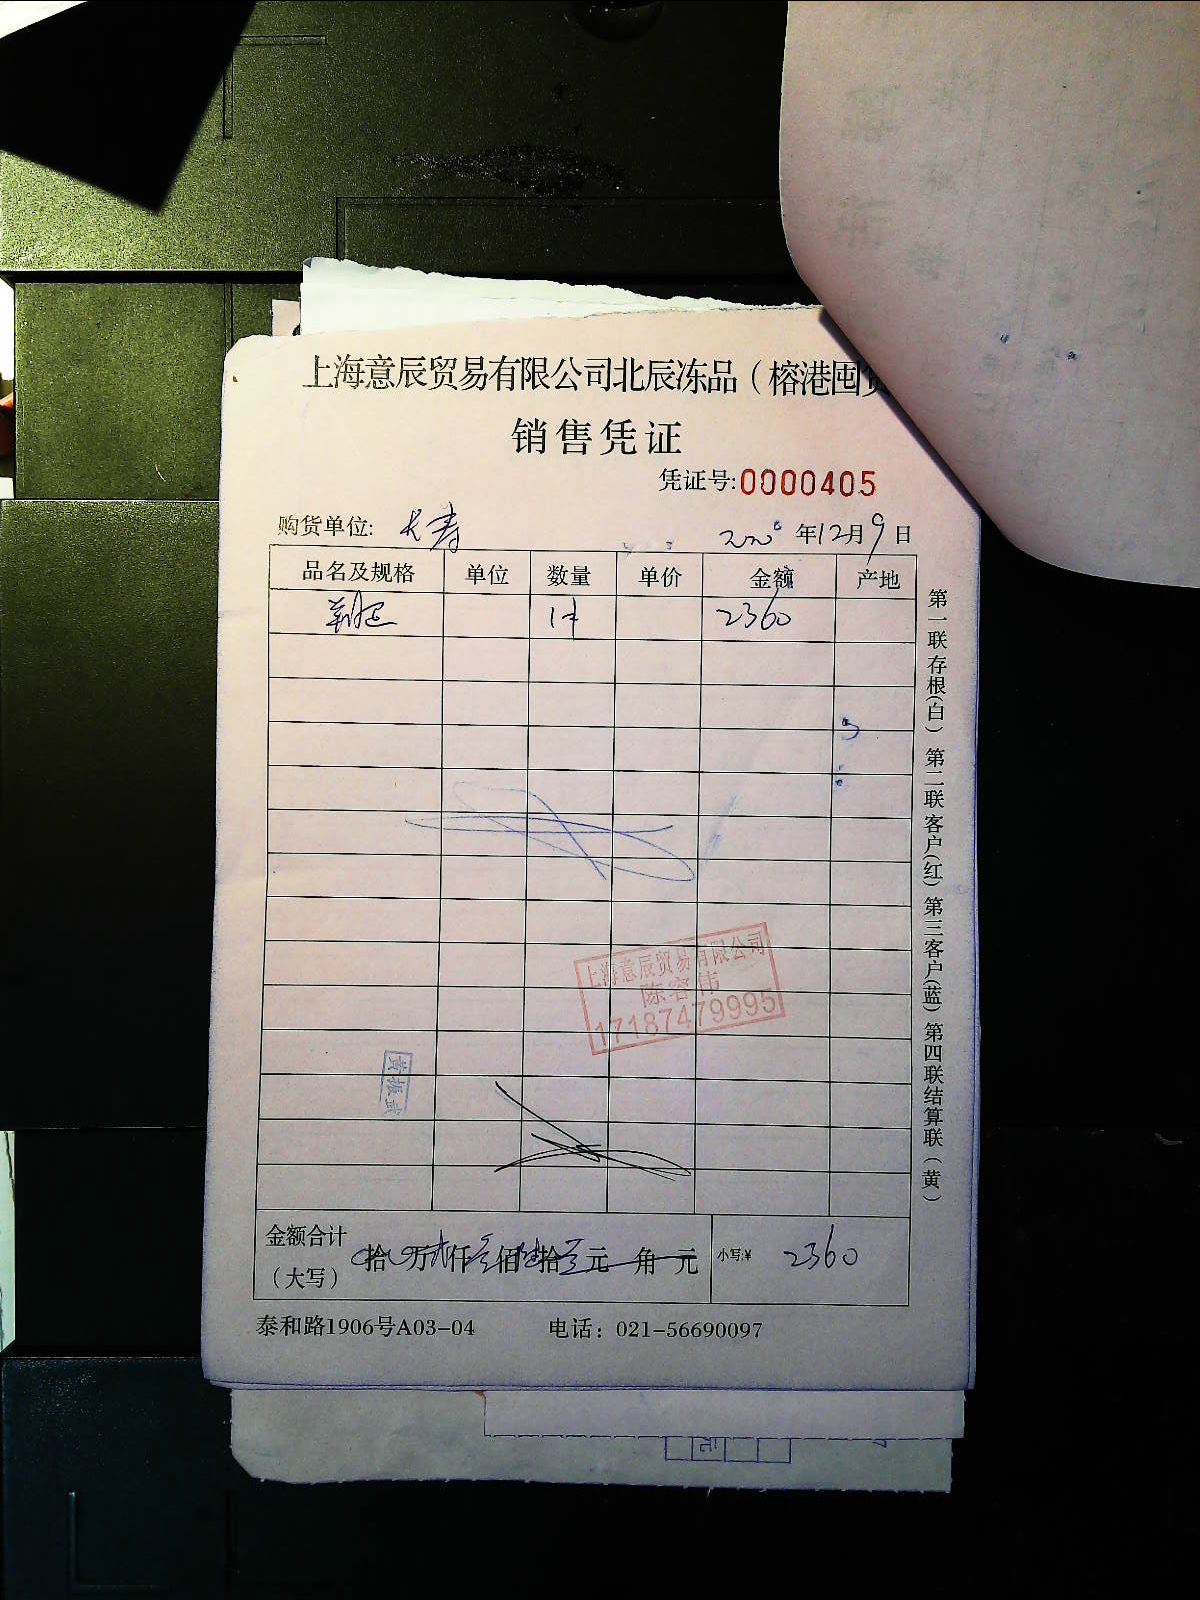 上海意辰贸易有限公司北辰冻品（榕港囤货
销售凭证
凭证号:0000405
购货单位: 长寿 2020年12月9日
品名及规格 单位 数量 单价 金额 产地
1件 2360
上海意辰贸易有限公司
陈容伟
17187479995
黄振武
金额合计（大写） 拾 万 仟 佰 拾 元 角 元 小写:¥ 2360
泰和路1906号A03-04 电话：021-56690097
第一联存根(白) 第二联客户(红) 第三客户(蓝) 第四联结算联（黄）